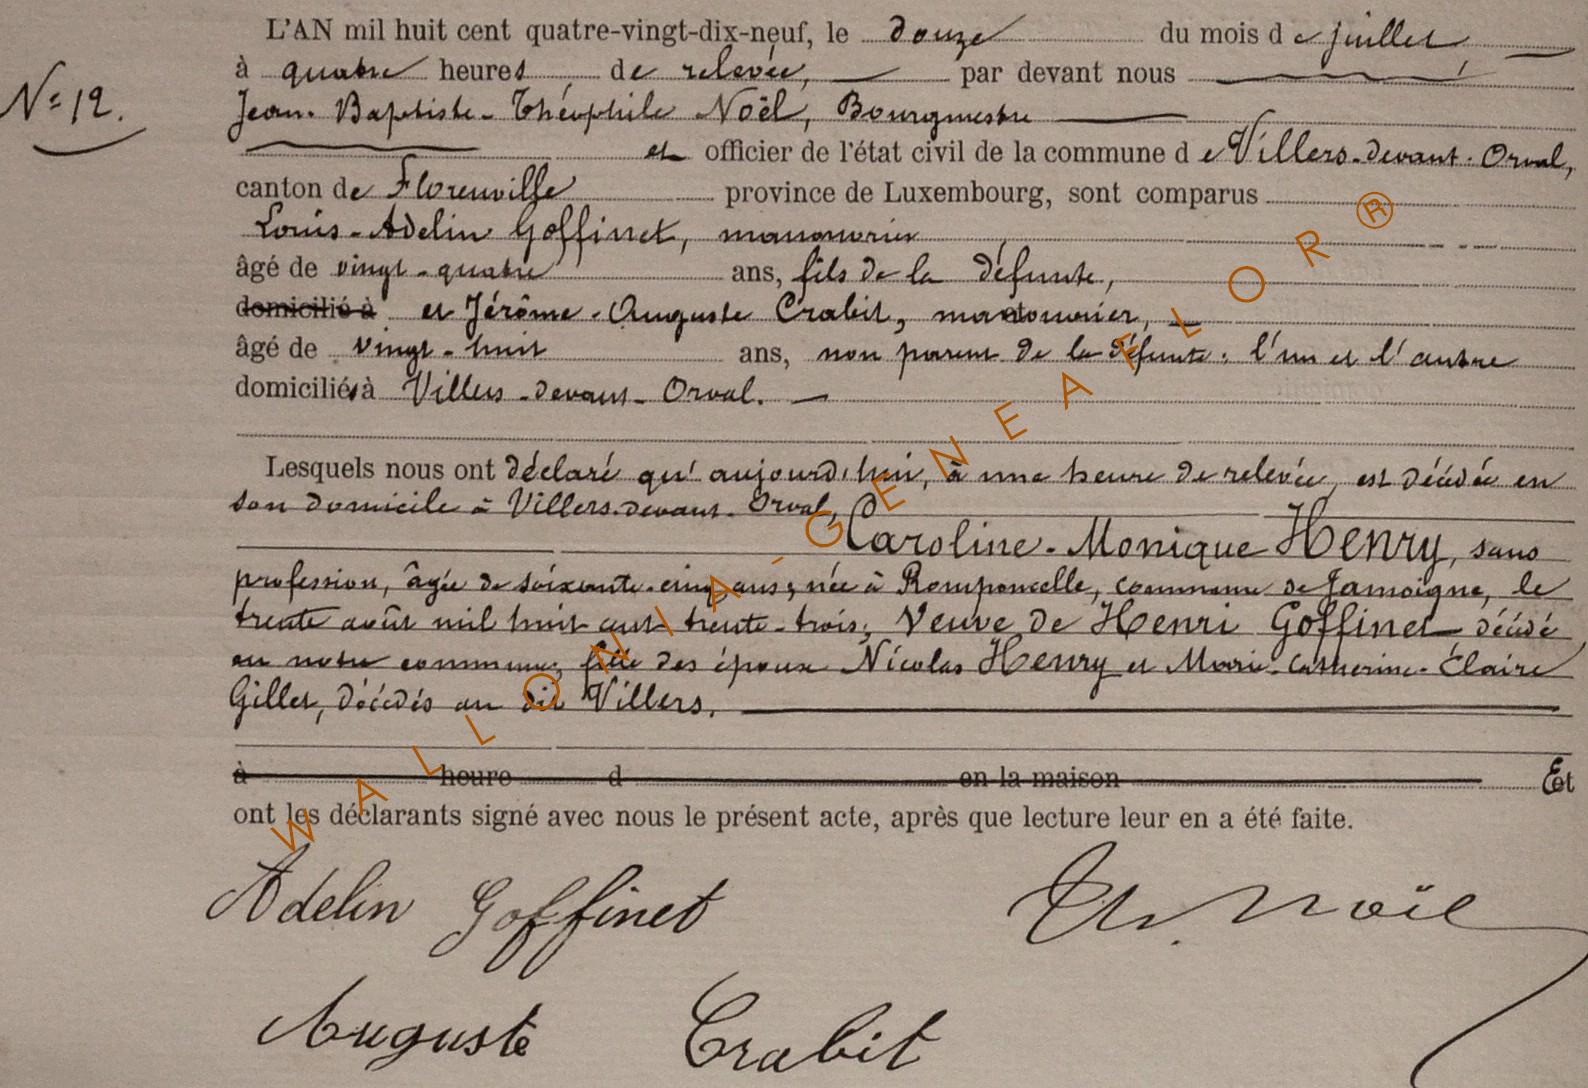 L'AN mil huit cent quatre-vingt-dix-neuf, le douze du mois de juillet
à quatre heures de relevée, par devant nous
N° 12.
Jean-Baptiste-Théophile Noël, Bourgmestre
et officier de l'état civil de la commune de Villers-devant-Orval,
canton de Florenville province de Luxembourg, sont comparus
Louis-Adelin Goffinet, manouvrier
âgé de vingt-quatre ans, fils de la défunte,
domicilié à et Jérôme-Auguste Crabit, manouvrier,
âgé de vingt-huit ans, non parent de la défunte, l'un et l'autre
domiciliés à Villers-devant-Orval.
Lesquels nous ont déclaré qu'aujourd'hui, à une heure de relevée, est décédée en
son domicile à Villers-devant-Orval,
Caroline-Monique Henry, sans
profession, âgée de soixante-cinq ans, née à Romponcelle, commune de Jamoigne, le
trente août mil huit cent trente-trois, Veuve de Henri Goffinet décédé
en notre commune, fille des époux Nicolas Henry et Marie-Catherine-Claire
Gillet, décédés au dit Villers.
à heure d en la maison Et
ont les déclarants signé avec nous le présent acte, après que lecture leur en a été faite.
Adelin Goffinet Th. Noël
Auguste Crabit
WALLONIA-GENEAFLOR®